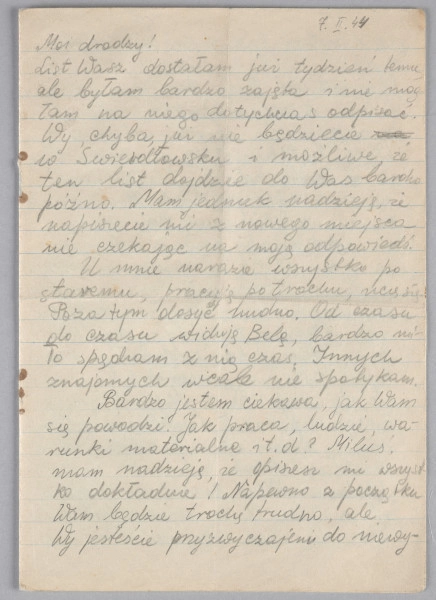 7. II. 44
Moi drodzy!
List Wasz dostałam już tydzień temu,
ale byłam bardzo zajęta i nie mog
łam na niego dotychczas odpisać.
Wy chyba już nie będziecie
w Swierdłowsku i możliwe, że
ten list dojdzie do Was bardzo
późno. Mam jednak nadzieję, że
napiszecie mi z nowego miejsca
nie czekając na moją odpowiedź.
U mnie narazie wszystko po
staremu, pracuję potrochu, uczę się.
Pozatym dosyć nudno. Od czasu
do czasu widuję Belę, bardzo mi-
ło spędzam z nią czas. Innych
znajomych wcale nie spotykam.
Bardzo jestem ciekawa, jak Wam
się powodzi. Jak praca, ludzie, wa-
runki materialne i t. d? Miluś,
mam nadzieję, że opiszesz mi wszyst
ko dokładnie! Napewno z początku
Wam będzie trochę trudno, ale
Wy jesteście przyzwyczajeni do niewy-